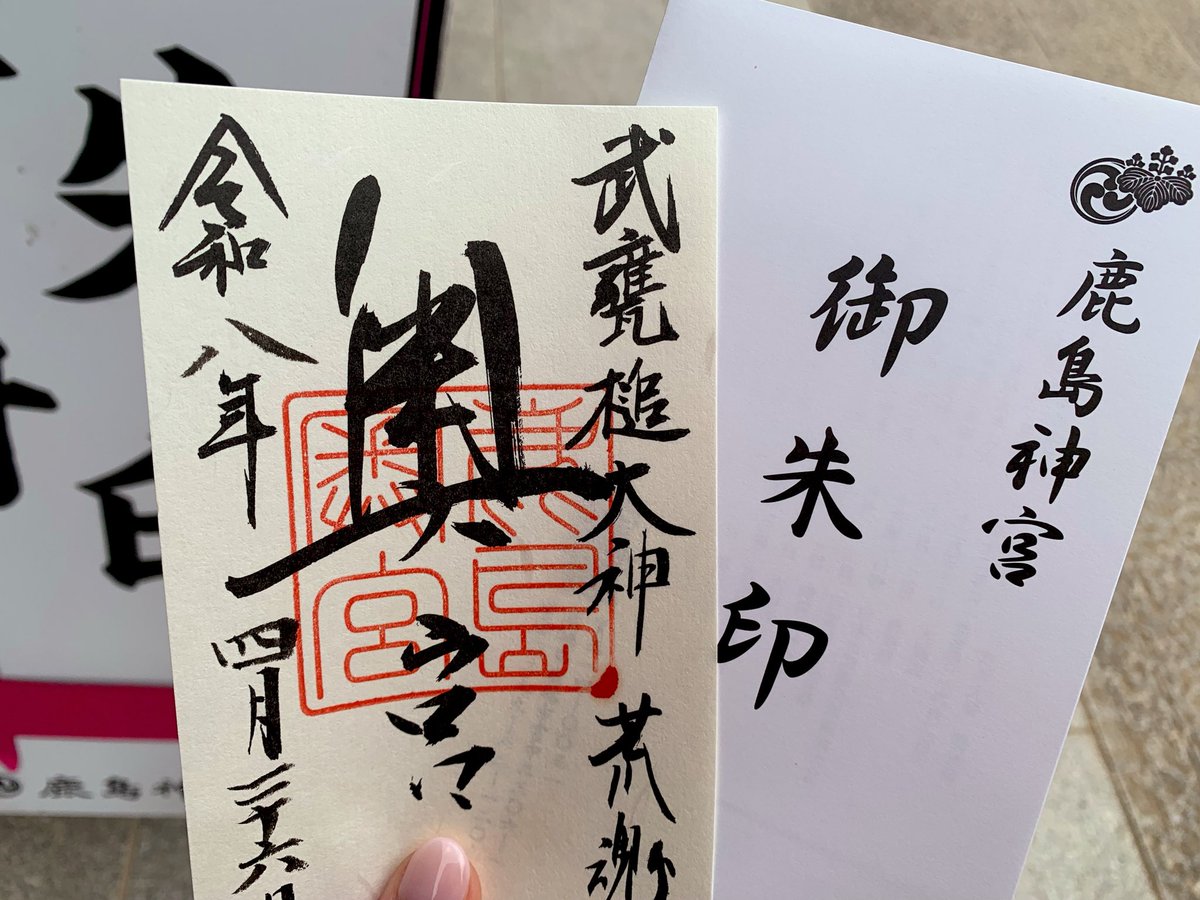 武甕槌大神 荒魂
奥宮
令和八年 四月二十六日
鹿島神宮
御朱印
鹿島神宮